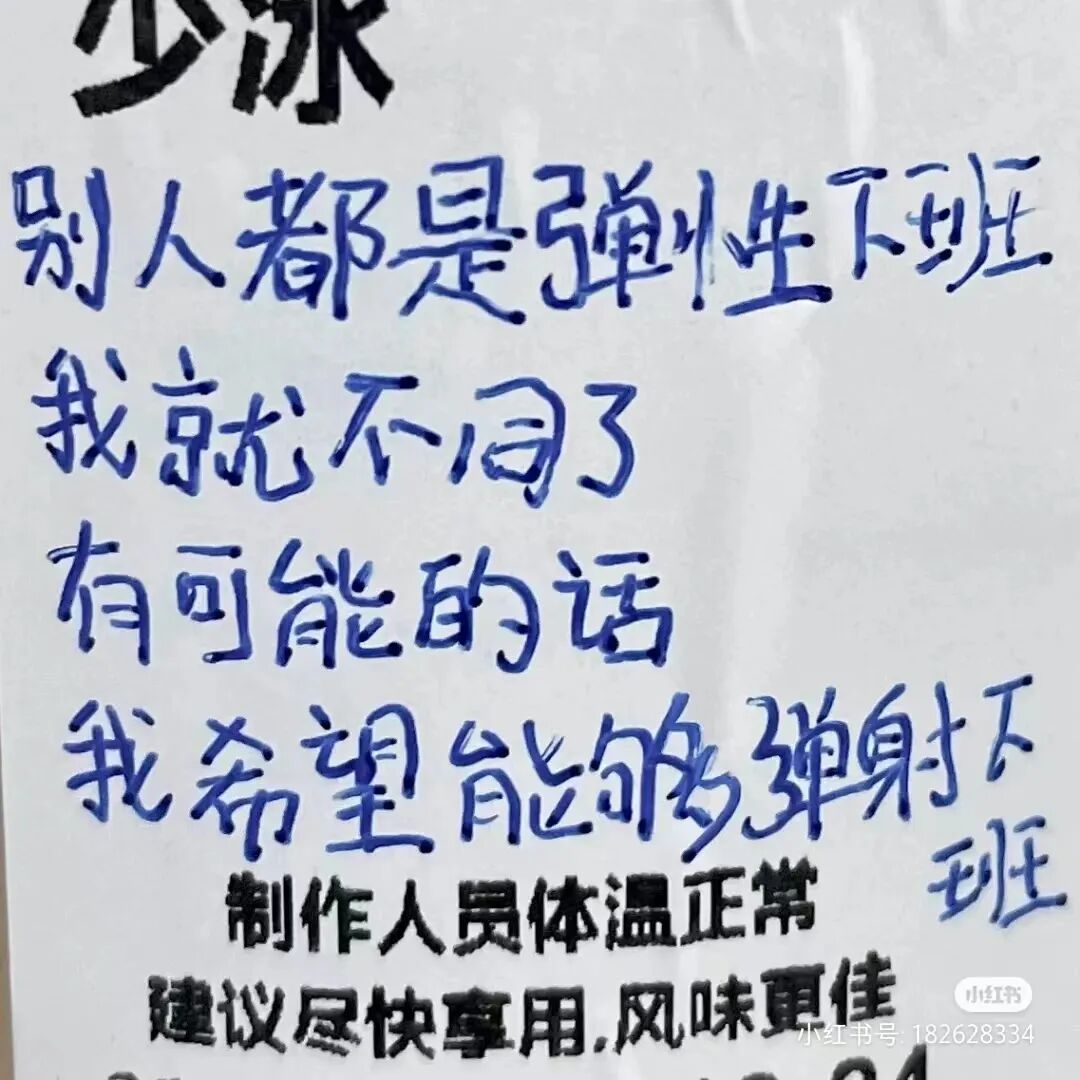 少冰
别人都是弹性下班
我就不同了
有可能的话
我希望能够弹射下
班
制作人员体温正常
建议尽快享用,风味更佳
小红书
小红书号: 182628334